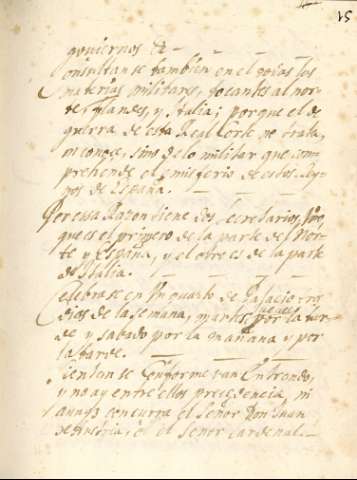 15
goviernos &c.
Consultanse tambien en el todas las
materias militares, tocantes al nor-
te, flandes, y Italia; porque el de
guerra de esta Real Corte no trata,
ni conoce, sino de lo militar que com-
prehende el emisferio de estos Rey-
nos de España.
Por essa Razon tiene dos secretarios, por
que es el primero de la parte del Nor-
te y España, y el otro es de la parte
de Italia.
Celebrase en un quarto de Palacio
dias de la semana, martes, jueves por la tar-
de y sabado por la mañana y por
la tarde.
Sientanse conforme van entrando,
y no ay entre ellos precedencia, ni
aunq concurra el señor Don Juan
de Austria, o el señor Cardenal.